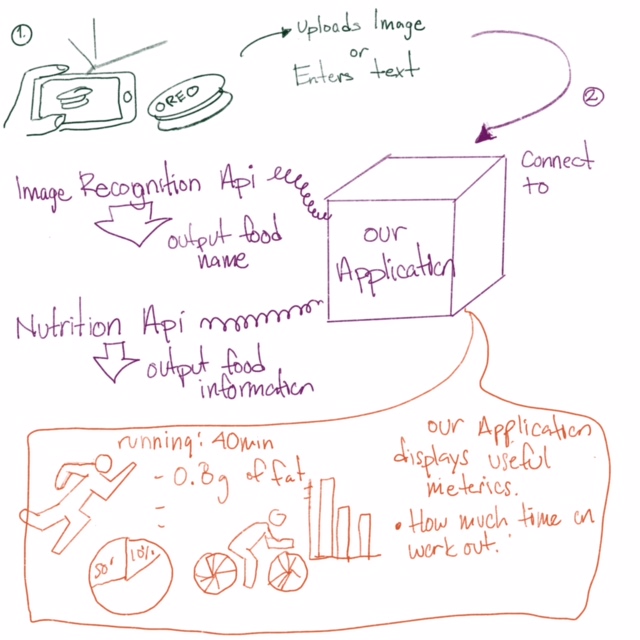 1.
Uploads Image
or
Enters text
OREO
2
Connect
to
Image Recognition Api
output food
name
our
Application
Nutrition Api
output food
information
running: 40min
- 0.8g of fat
-
-
50%
10%
our Application
displays useful
meterics.
• How much time on
work out.